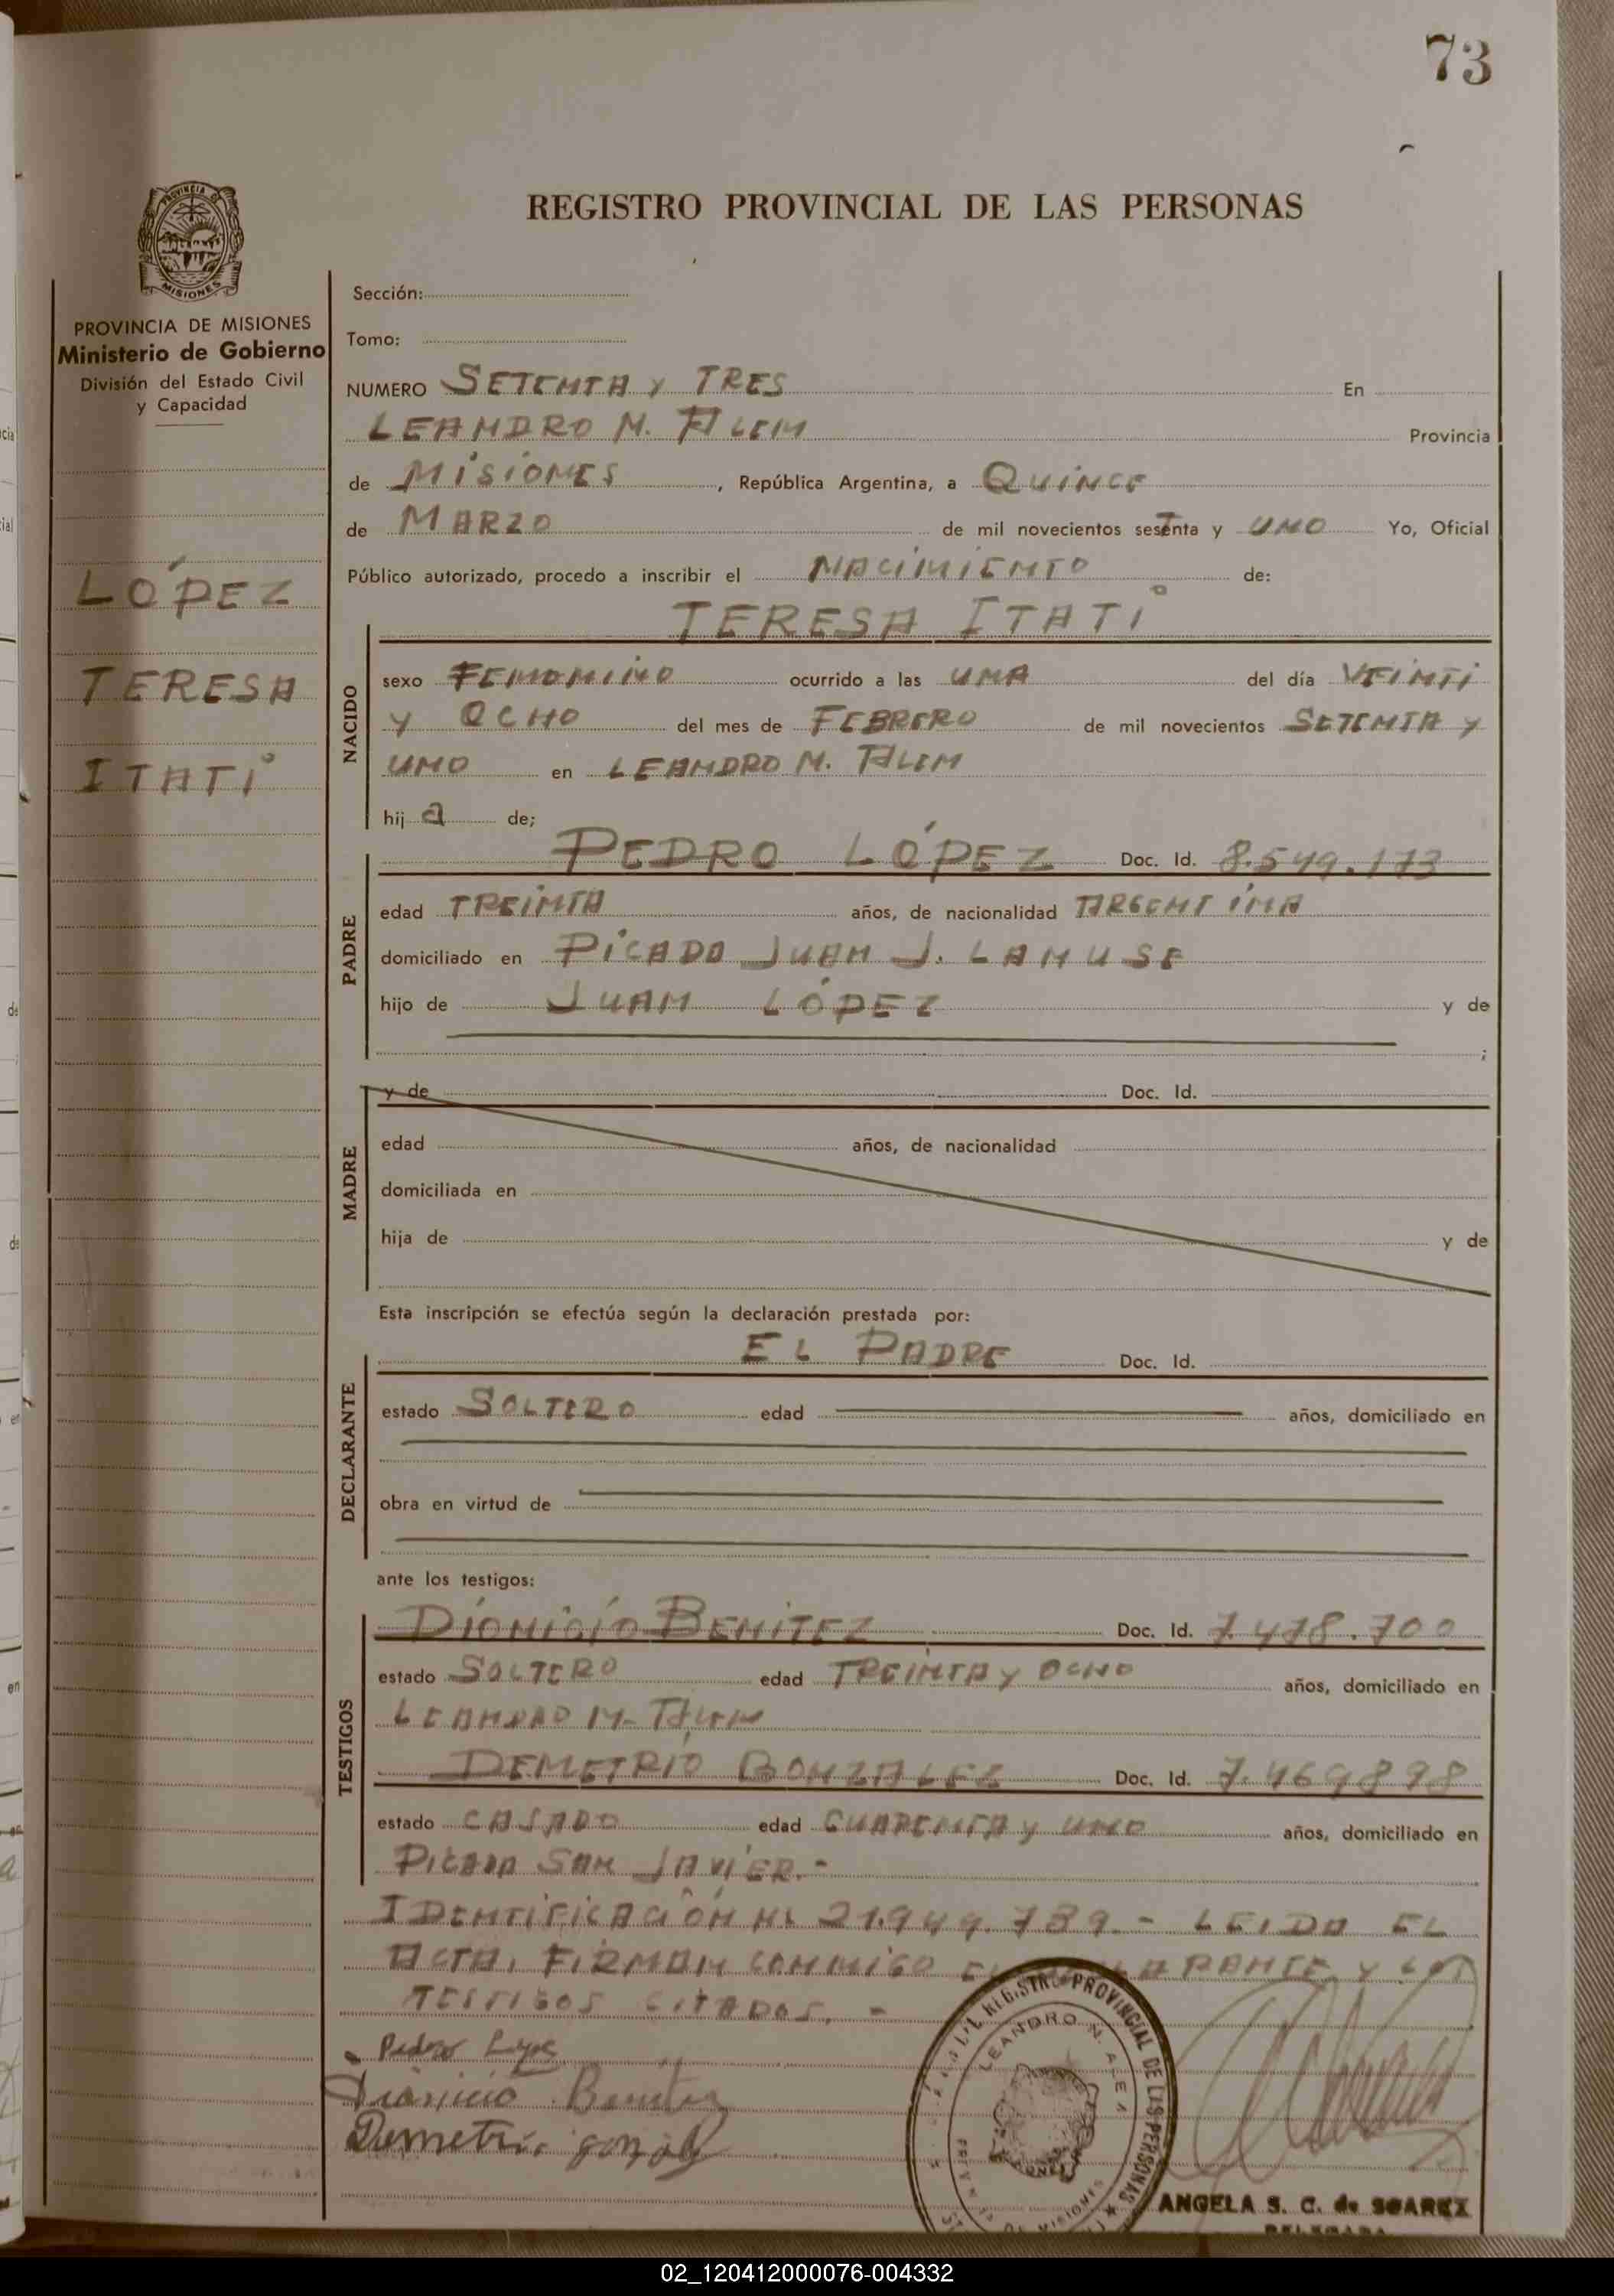 73
REGISTRO PROVINCIAL DE LAS PERSONAS
PROVINCIA DE MISIONES
Ministerio de Gobierno
División del Estado Civil
y Capacidad
LÓPEZ
TERESA
ITATI
Sección:
Tomo:
NUMERO SETENTA Y TRES En
LEANDRO N. ALEM Provincia
de MISIONES, República Argentina, a QUINCE
de MARZO de mil novecientos setenta y UNO Yo, Oficial
Público autorizado, procedo a inscribir el NACIMIENTO de:
TERESA ITATI
NACIDO
sexo FEMENINO ocurrido a las UNA del día VEINTI
Y OCHO del mes de FEBRERO de mil novecientos SETENTA Y
UNO en LEANDRO N. ALEM
hij a de;
PADRE
PEDRO LÓPEZ Doc. Id. 8.549.173
edad TREINTA años, de nacionalidad ARGENTINA
domiciliado en PICADO JUAN J. LANUSE
hijo de JUAN LÓPEZ y de
;
MADRE
y de Doc. Id.
edad años, de nacionalidad
domiciliada en
hija de y de
Esta inscripción se efectúa según la declaración prestada por:
DECLARANTE
EL PADRE Doc. Id.
estado SOLTERO edad años, domiciliado en
obra en virtud de
ante los testigos:
TESTIGOS
DIONICIO BENITEZ Doc. Id. 7.478.700
estado SOLTERO edad TREINTA Y OCHO años, domiciliado en
LEANDRO N. ALEM
DEMETRIO GONZALEZ Doc. Id. 7.469898
estado CASADO edad CUARENTA Y UNO años, domiciliado en
PICADA SAN JAVIER.-
IDENTIFICACIÓN Nº 21.949.789.- LEIDA EL
ACTA, FIRMAN CONMIGO EL DECLARANTE Y LOS
TESTIGOS CITADOS.-
Pedro Lopes
Dionicio Benitez
Demetrio gonzalez
REGISTRO PROVINCIAL DE LAS PERSONAS
LEANDRO N. ALEM
MISIONES
ANGELA S. C. de SOAREZ
DELEGADA
02_120412000076-004332